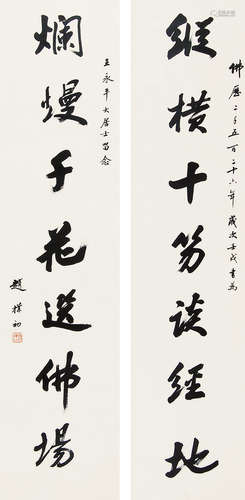 佛曆二千五百二十六年歲次壬戌書為
縱橫十笏談經地
王永平大居士留念
爛熳千花選佛場
趙樸初